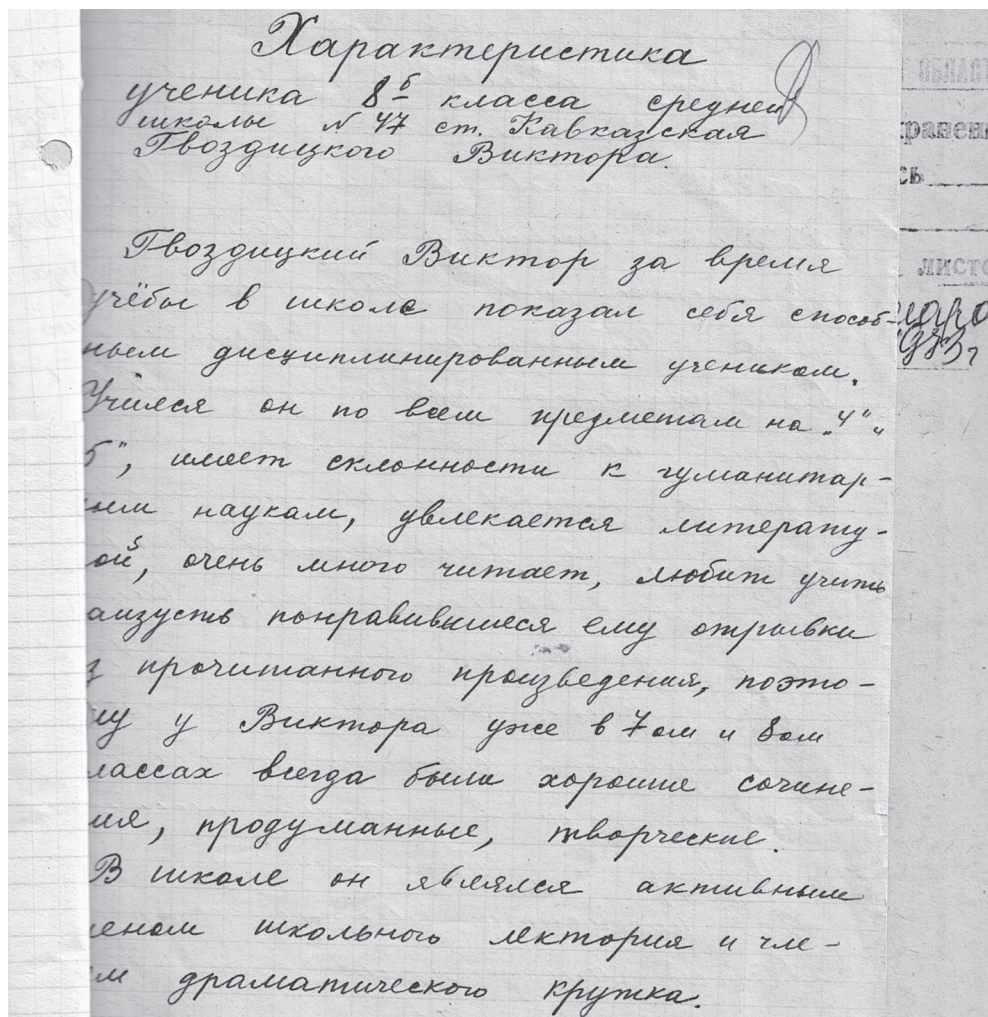 Характеристика
ученика 8б класса средней
школы N 47 ст. Кавказская
Гвоздицкого Виктора.
Гвоздицкий Виктор за время
учёбы в школе показал себя способ-
ным дисциплинированным учеником.
Учился он по всем предметам на „4" и
5", имеет склонности к гуманитар-
ным наукам, увлекается литерату-
ой, очень много читает, любит учить
аизусть понравившиеся ему отрывки
з прочитанного произведения, поэто-
му у Виктора уже в 7ом и 8ом
лассах всегда были хорошие сочине-
ия, продуманные, творческие.
В школе он являлся активным
леном школьного лектория и чле-
м драматического кружка.
хранен
сь
листо
1973г